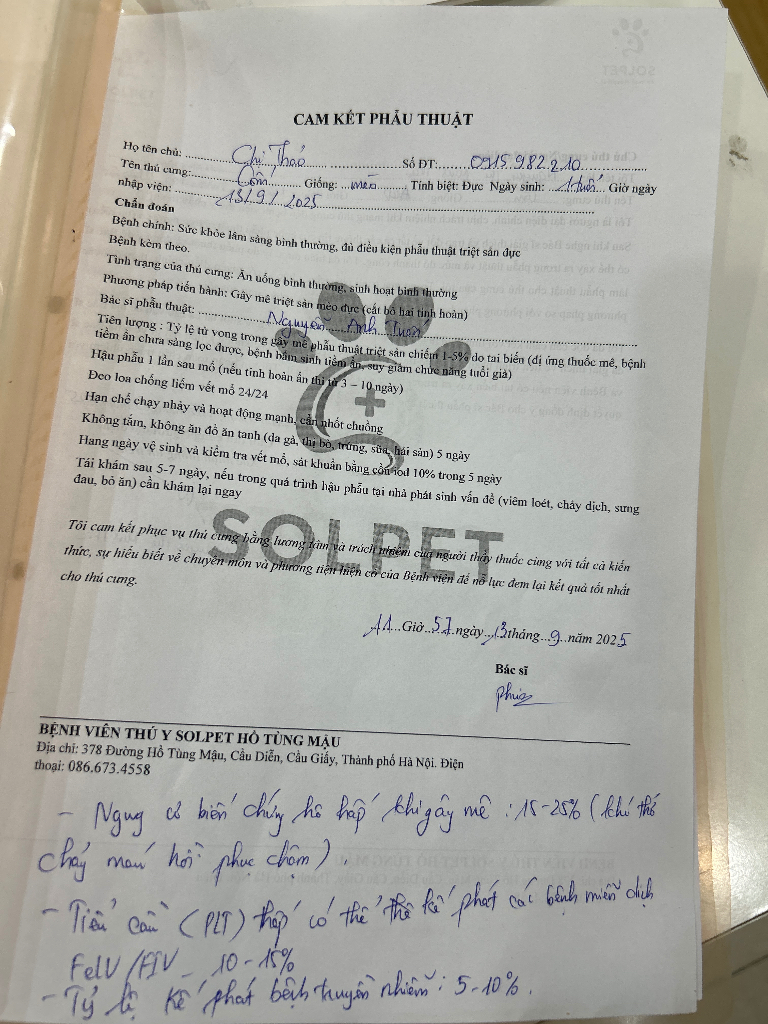 SOLPET
CAM KẾT PHẪU THUẬT
Họ tên chủ: Chị Thảo Số ĐT: 0915.982.210
Tên thú cưng: Cốm Giống: mèo Tính biệt: Đực Ngày sinh: 1 tuổi Giờ ngày
nhập viện: 13/9/2025
Chẩn đoán
Bệnh chính: Sức khỏe lâm sàng bình thường, đủ điều kiện phẫu thuật triệt sản đực
Bệnh kèm theo.
Tình trạng của thú cưng: Ăn uống bình thường, sinh hoạt bình thường
Phương pháp tiến hành: Gây mê triệt sản mèo đực (cắt bỏ hai tinh hoàn)
Bác sĩ phẫu thuật: Nguyễn Anh
Tiên lượng : Tỷ lệ tử vong trong gây mê phẫu thuật triệt sản chiếm 1-5% do tai biến (dị ứng thuốc mê, bệnh
tiềm ẩn chưa sàng lọc được, bệnh bẩm sinh tiềm ẩn, suy giảm chức năng tuổi già)
Hậu phẫu 1 lần sau mổ (nếu tinh hoàn ẩn thì từ 3 – 10 ngày)
Đeo loa chống liếm vết mổ 24/24
Hạn chế chạy nhảy và hoạt động mạnh, cần nhốt chuồng
Không tắm, không ăn đồ ăn tanh (da gà, thị bò, trứng, sữa, hải sản) 5 ngày
Hang ngày vệ sinh và kiểm tra vết mổ, sát khuẩn bằng cồn iod 10% trong 5 ngày
Tái khám sau 5-7 ngày, nếu trong quá trình hậu phẫu tại nhà phát sinh vấn đề (viêm loét, chảy dịch, sưng
đau, bỏ ăn) cần khám lại ngay
Tôi cam kết phục vụ thú cưng bằng lương tâm và trách nhiệm của người thầy thuốc cùng với tất cả kiến
thức, sự hiểu biết về chuyên môn và phương tiện hiện có của Bệnh viện để nỗ lực đem lại kết quả tốt nhất
cho thú cưng.
SOLPET
11 Giờ 57 ngày 13 tháng 9 năm 2025
Bác sĩ
BỆNH VIÊN THÚ Y SOLPET HỒ TÙNG MẬU
Địa chỉ: 378 Đường Hồ Tùng Mậu, Cầu Diễn, Cầu Giấy, Thành phố Hà Nội. Điện
thoại: 086.673.4558
- Nguy cơ biến chứng hô hấp khi gây mê : 15-25% (khó thở
chảy máu hồi phục chậm).
- Tiểu cầu (PLT) thấp có thể kế phát các bệnh miễn dịch
FelV/FIV - 10-15%
- Tỷ lệ kế phát bệnh truyền nhiễm: 5-10%.